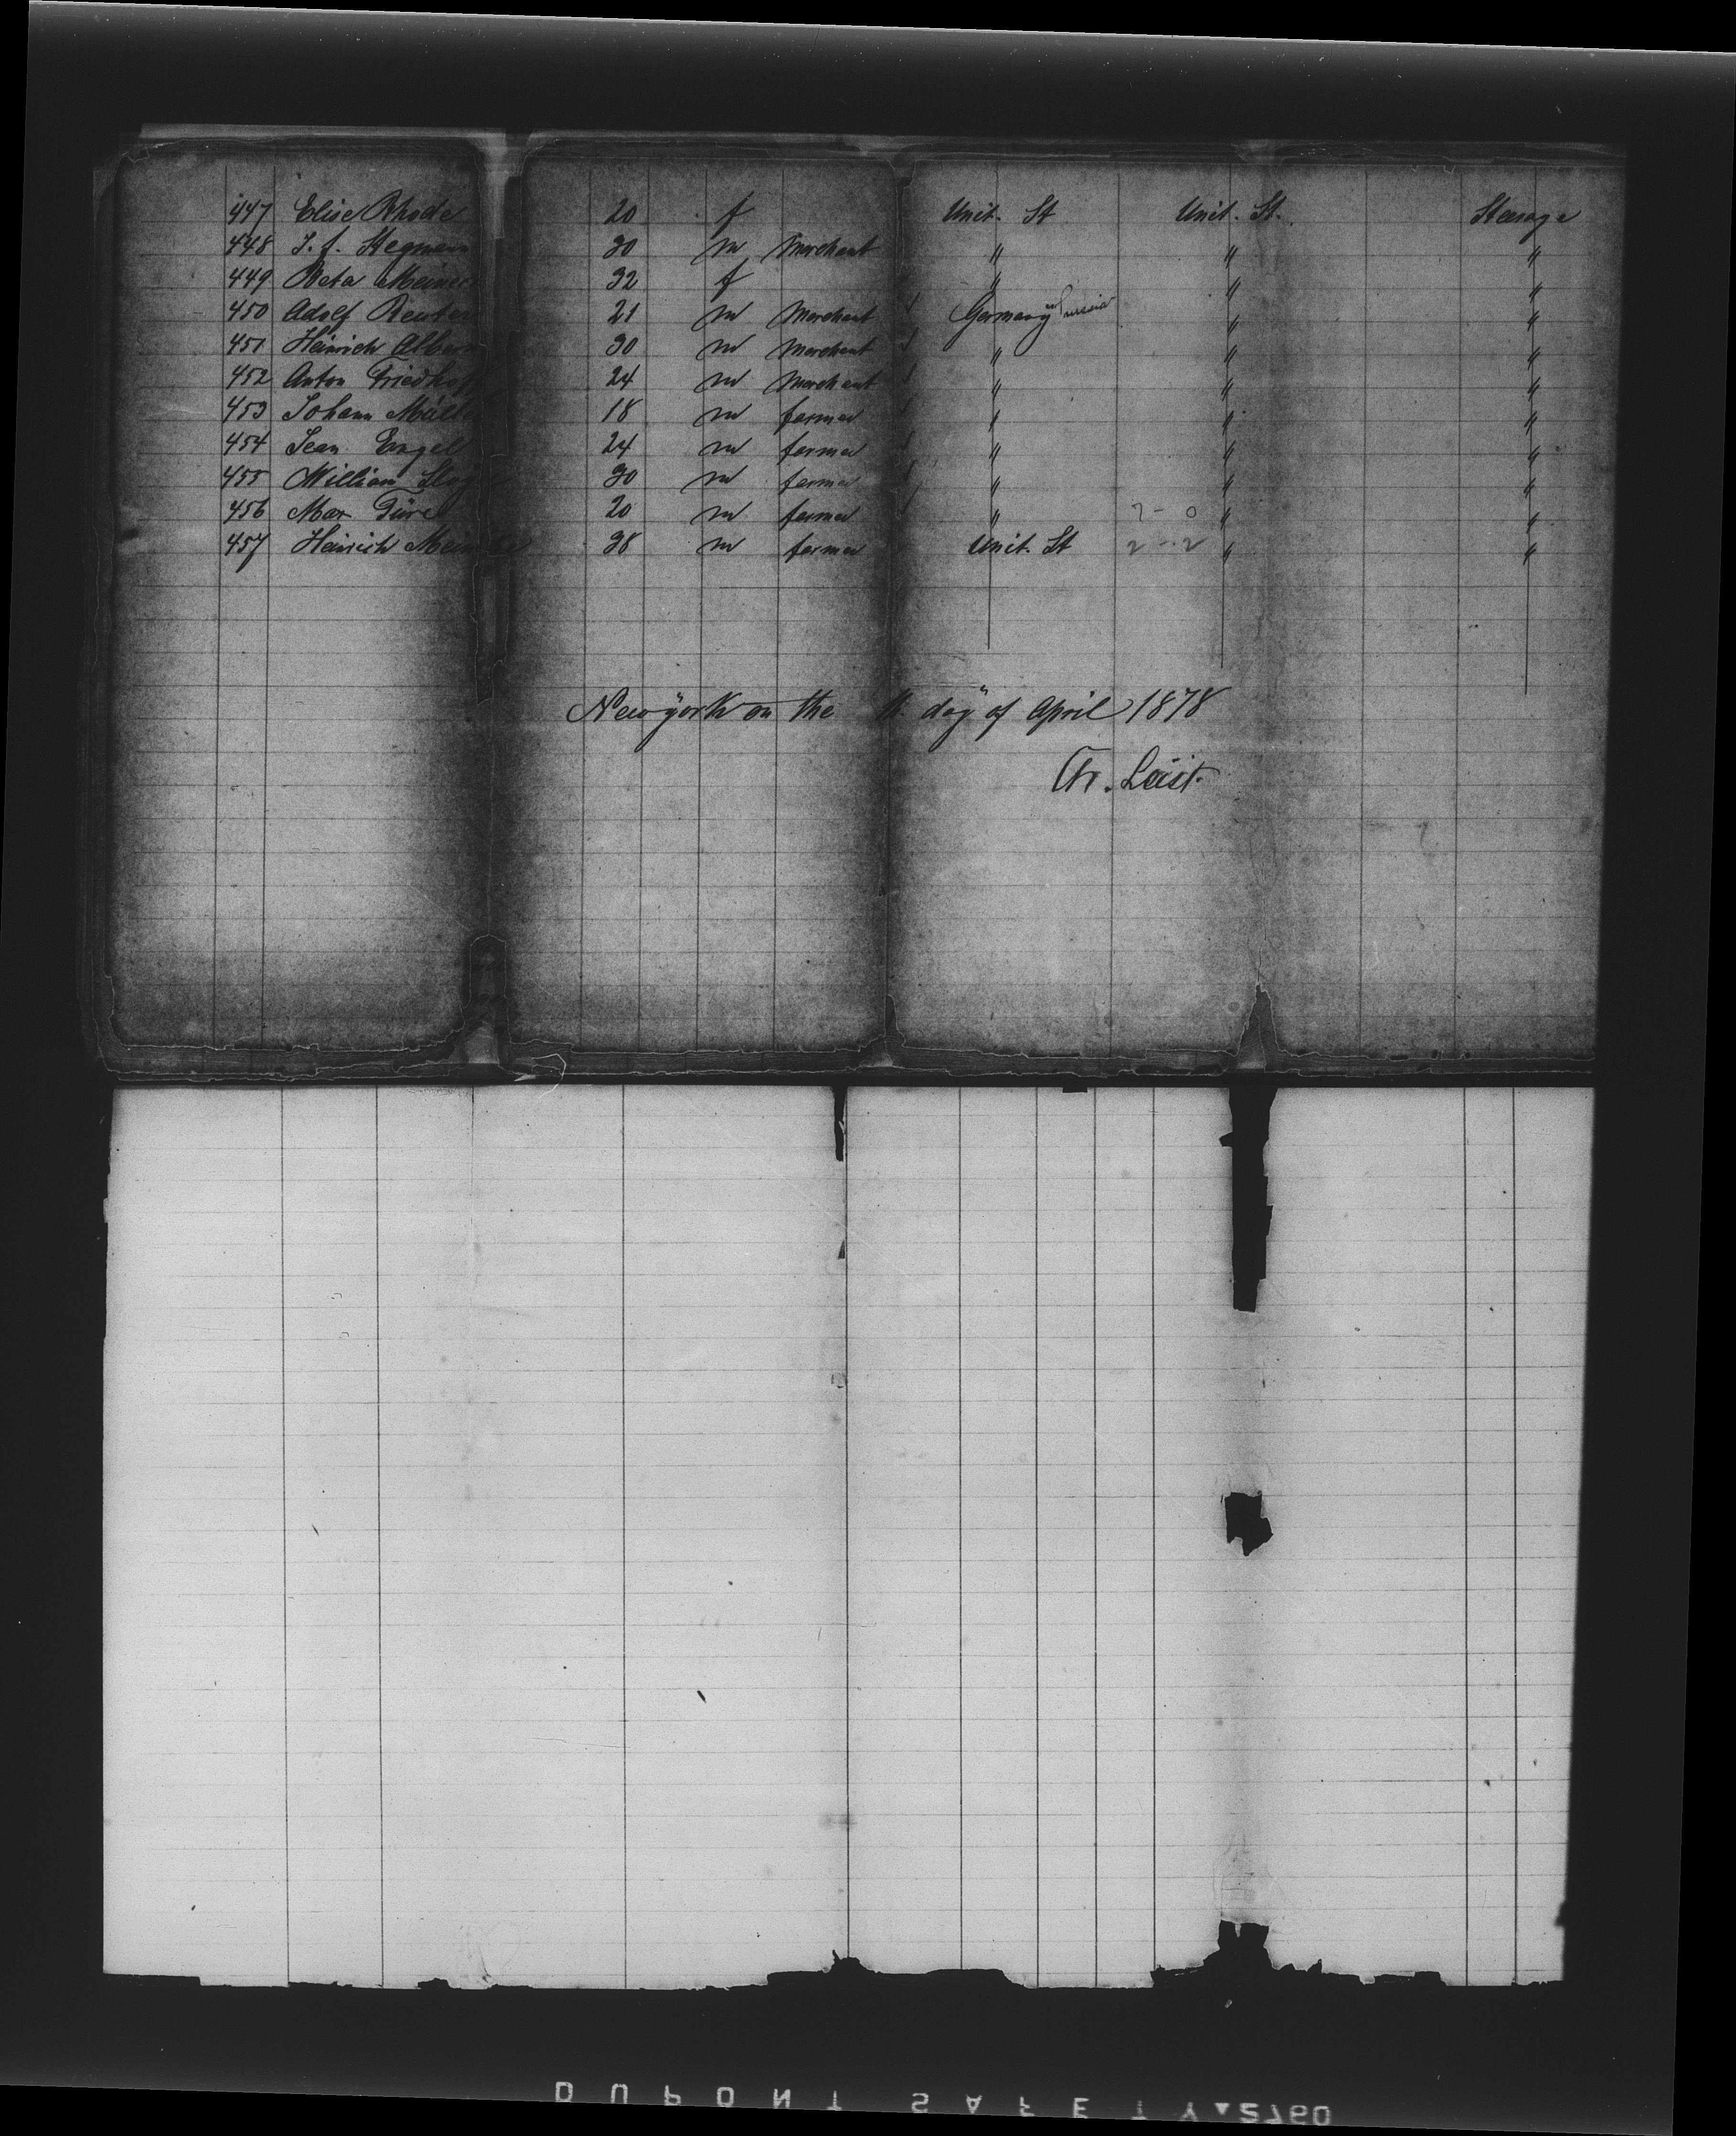 447 Elise Rhode 20 f Unit. St Unit. St. Steerage
448 J. f. Stegmann 30 m Merchant " " "
449 Meta Meiner 32 f " " "
450 Adolf Reuter 21 m Merchant 1 Germany Prussia " "
451 Heinrich Albers 30 m Merchant 1 " " "
452 Anton Friedhof 24 m Merchant 1 " " "
453 Johann Mülle 18 m farmer " " "
454 Jean Engel 24 m farmer 1 " " "
455 William 30 m farmer " " "
456 Max 20 m farmer " 2 - 0 " "
457 Heinrich 38 m farmer Unit. St 2 - 2 " "
Newyork on the day of April 1878
Chr. Leist.
DUPONT SAFETY 2760